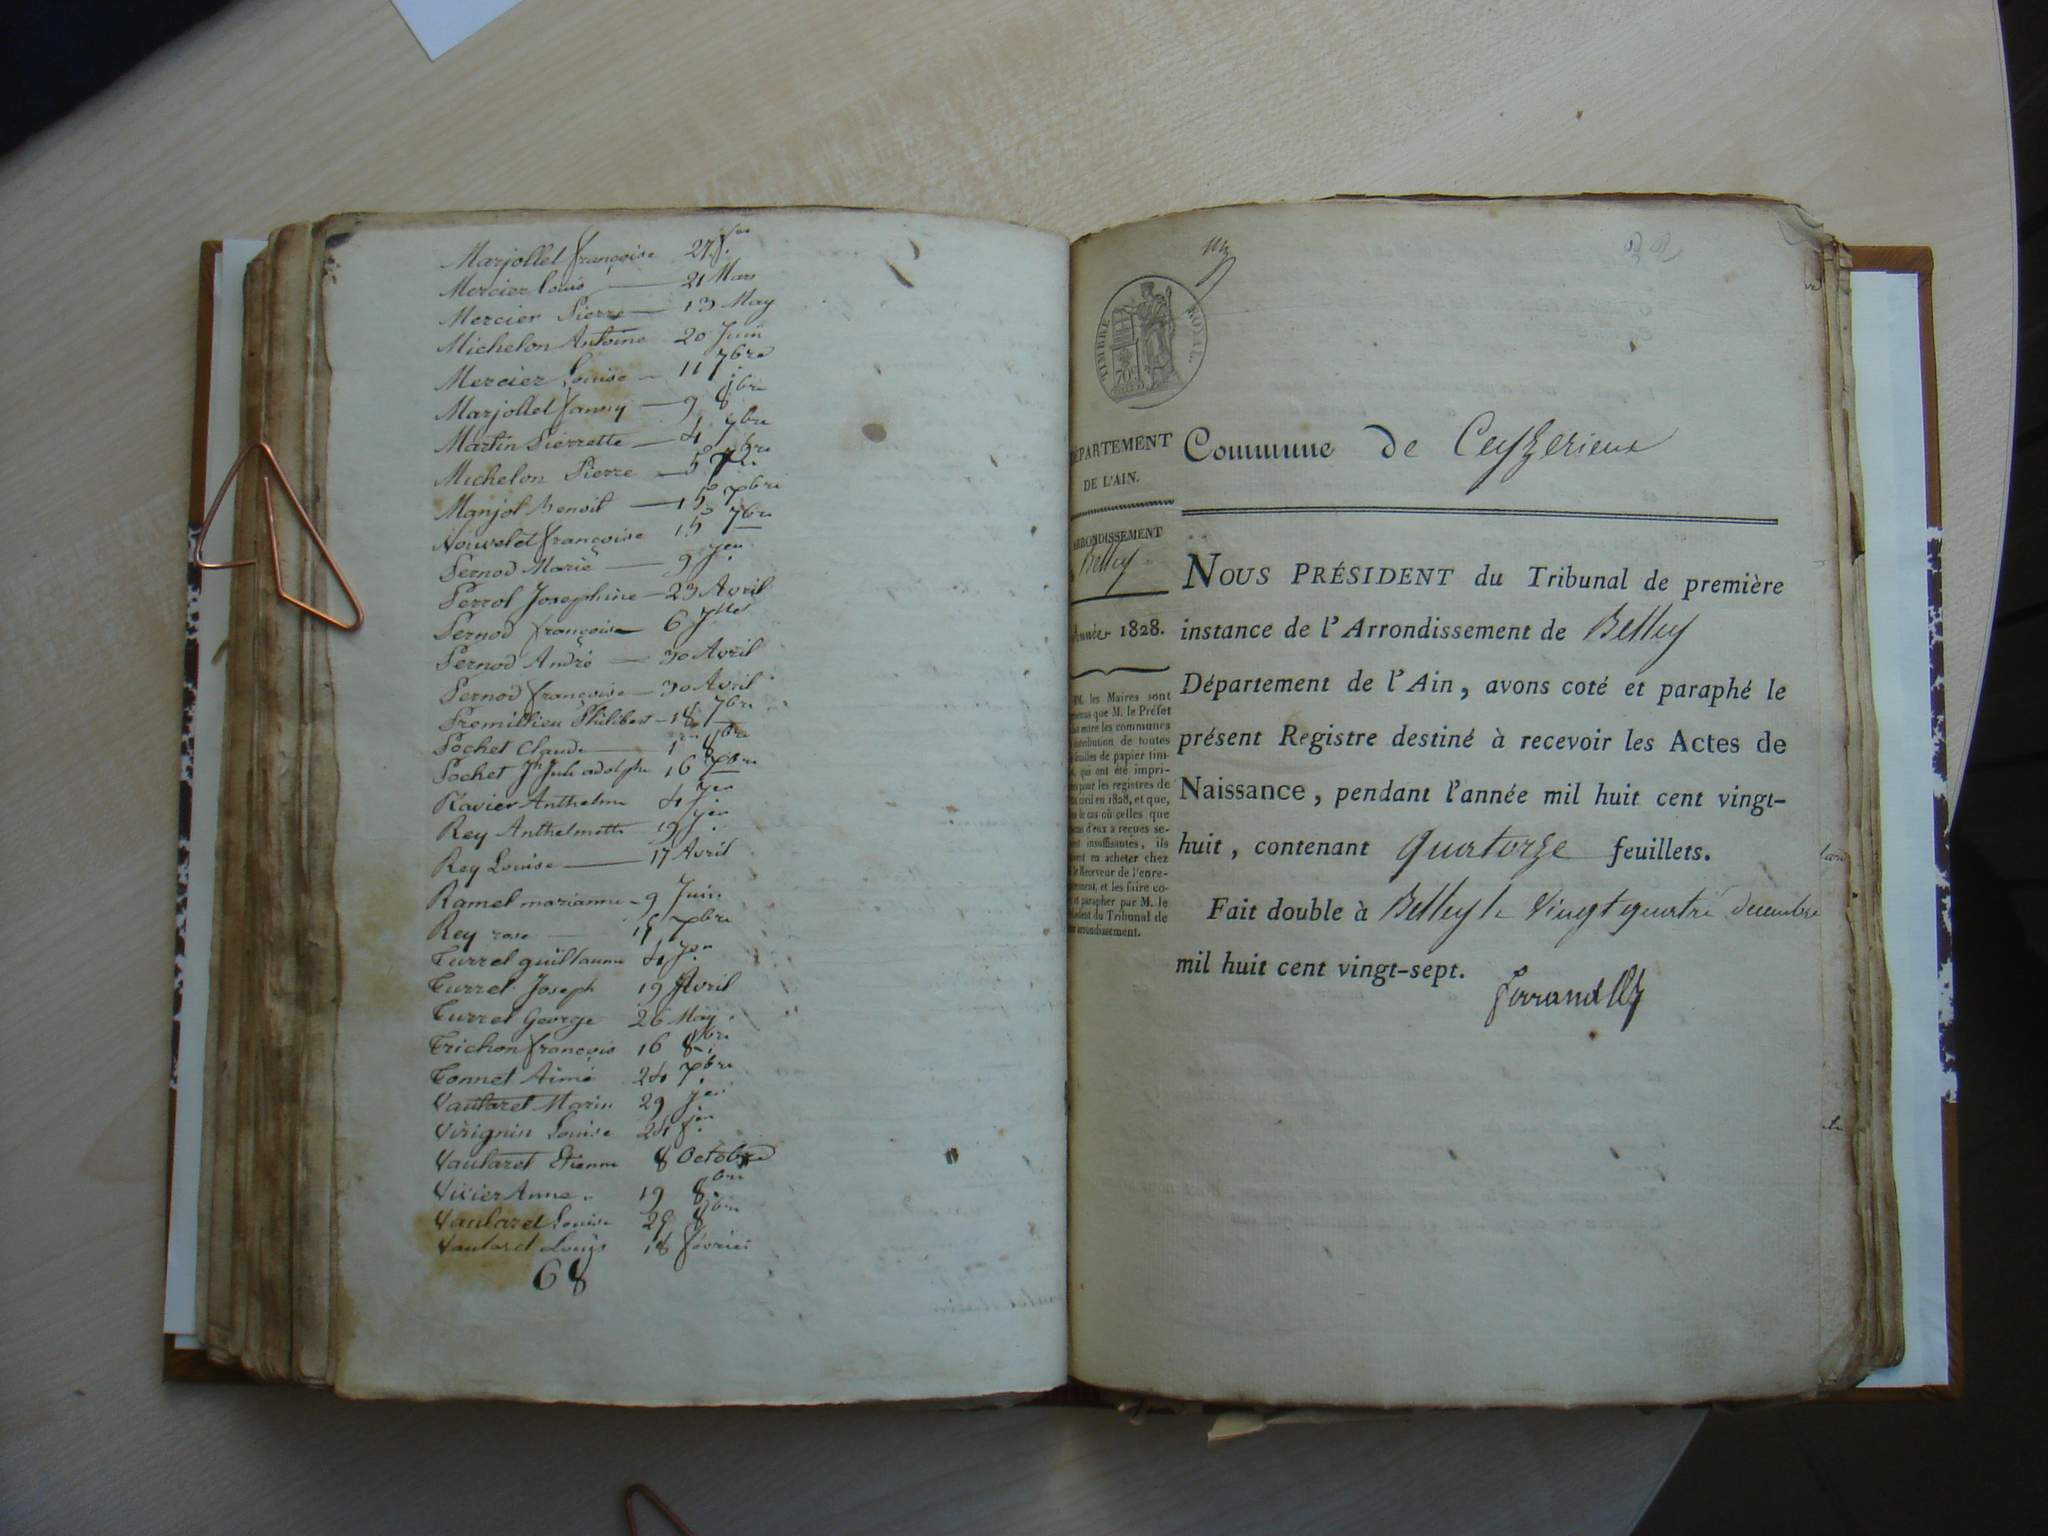 Marjollet françoise 27 fer
Mercier Louis 21 Mars
Mercier Pierre 13 May
Michelon Antoine 20 Juin
Mercier Louise 11 7bre
Marjollet fanny 9 8bre
Martin Pierrette 4 7bre
Michelon Pierre
Manjot Benoit 15 7bre
Nouvelet françoise 15 7bre
Pernod Marie 9 Jer
Perrot Josephine 23 Avril
Pernod françoise 6
Pernod André 30 Avril
Pernod françoise 30 Avril
Premillieu Philibert 18 7bre
Pochet Claude 1er 8bre
Pochet Jh Jule adolphe 16 7bre
Ravier Anthelme 4 Jer
Rey Anthelmette 19 Jer
Rey Louise 17 Avril
Ramel marianne 9 Juin
Rey rose 7bre
Turrel guillaume 4 Jer
Turrel Joseph 19 Avril
Turrel George 26 May
Trichon françois 16 8bre
Tonnet Aimé 24 7bre
Vautaret Marin 29 Jer
Virignin Louise 24 Jer
Vautaret Etienne 8 Octobre
Vivier Anne 19 8bre
Vautaret Louise 29 8bre
Vautaret Louis 18 février
68
TIMBRE ROYAL
70c
DÉPARTEMENT
DE L'AIN.
ARRONDISSEMENT
Belley
Année 1828.
MM. les Maires sont
que M. le Préfet
entre les communes
de toutes
feuilles de papier tim-
qui ont été impri-
pour les registres de
civil en 1828, et que,
le cas où celles que
d'eux a reçues se-
insuffisantes, ils
en acheter chez
le Receveur de l'enre-
et les faire co-
et parapher par M. le
du Tribunal de
arrondissement.
Commune de Ceyzerieux
NOUS PRÉSIDENT du Tribunal de première
instance de l'Arrondissement de Belley
Département de l'Ain, avons coté et paraphé le
présent Registre destiné à recevoir les Actes de
Naissance, pendant l'année mil huit cent vingt-
huit, contenant quatorze feuillets.
Fait double à Belley le vingt quatre decembre
mil huit cent vingt-sept.